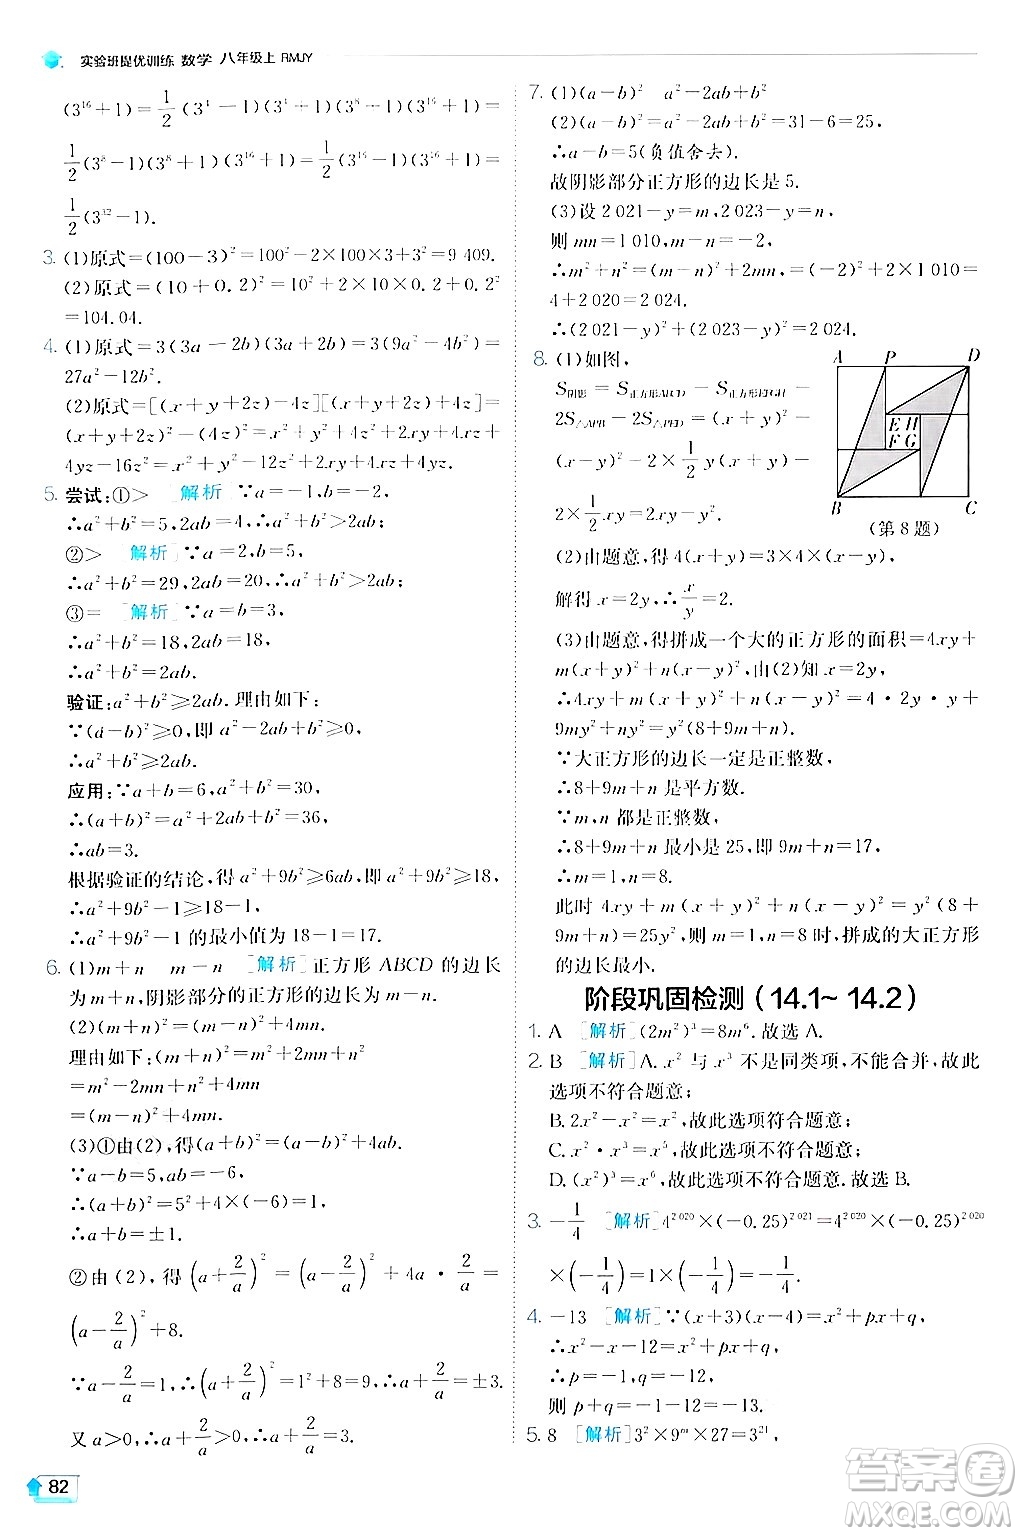 实验班提优训练 数学 八年级上 RMJY
(3¹⁶+1)=1/2(3⁴-1)(3⁴+1)(3⁸+1)(3¹⁶+1)=
1/2(3⁸-1)(3⁸+1)(3¹⁶+1)=1/2(3¹⁶-1)(3¹⁶+1)=
1/2(3³²-1).
3. (1)原式=(100-3)²=100²-2×100×3+3²=9 409.
(2)原式=(10+0.2)²=10²+2×10×0.2+0.2²
=104.04.
4. (1)原式=3(3a-2b)(3a+2b)=3(9a²-4b²)=
27a²-12b².
(2)原式=[(x+y+2z)-4z][(x+y+2z)+4z]=
(x+y+2z)²-(4z)²=x²+y²+4z²+2xy+4xz+
4yz-16z²=x²+y²-12z²+2xy+4xz+4yz.
5. 尝试:①> [解析]∵a=-1,b=-2,
∴a²+b²=5,2ab=4,∴a²+b²>2ab;
②> [解析]∵a=2,b=5,
∴a²+b²=29,2ab=20,∴a²+b²>2ab;
③= [解析]∵a=b=3,
∴a²+b²=18,2ab=18,
∴a²+b²=2ab.
验证:a²+b²≥2ab.理由如下:
∵(a-b)²≥0,即a²-2ab+b²≥0,
∴a²+b²≥2ab.
应用:∵a+b=6,a²+b²=30,
∴(a+b)²=a²+2ab+b²=36,
∴ab=3.
根据验证的结论,得a²+9b²≥6ab,即a²+9b²≥18,
∴a²+9b²-1≥18-1,
∴a²+9b²-1的最小值为18-1=17.
6. (1)m+n m-n [解析]正方形ABCD的边长
为m+n,阴影部分的正方形的边长为m-n.
(2)(m+n)²=(m-n)²+4mn.
理由如下:∵(m+n)²=m²+2mn+n²
=m²-2mn+n²+4mn
=(m-n)²+4mn.
(3)①由(2),得(a+b)²=(a-b)²+4ab.
∵a-b=5,ab=-6,
∴(a+b)²=5²+4×(-6)=1,
∴a+b=±1.
②由(2),得(a+2/a)²=(a-2/a)²+4a·2/a=
(a-2/a)²+8.
∵a-2/a=1,∴(a+2/a)²=1²+8=9,∴a+2/a=±3.
又a>0,∴a+2/a>0,∴a+2/a=3.
82
7. (1)(a-b)² a²-2ab+b²
(2)(a-b)²=a²-2ab+b²=31-6=25,
∴a-b=5(负值舍去).
故阴影部分正方形的边长是5.
(3)设2 021-y=m,2 023-y=n,
则mn=1 010,n-m=2,
∴m²+n²=(n-m)²+2mn=2²+2×1 010=
4+2 020=2 024.
∴(2 021-y)²+(2 023-y)²=2 024.
8. (1)如图,
S阴影=S正方形ABCD-S正方形EFGH-
2S△APB-2S△PED=(x+y)²-
(x-y)²-2×1/2y(x+y)-
2×1/2xy=2xy-y².
A P D
E H
F G
B C
(第8题)
(2)由题意,得4(x+y)=3×4(x-y),
解得x=2y,∴x/y=2.
(3)由题意,得拼成一个大的正方形的面积=4xy+
m(x+y)²+n(x-y)².由(2)知x=2y,
∴4xy+m(x+y)²+n(x-y)²=4·2y·y+
9my²+ny²=y²(8+9m+n).
∵大正方形的边长一定是正整数,
∴8+9m+n是平方数.
∵m,n都是正整数,
∴8+9m+n最小是25,即9m+n=17,
∴m=1,n=8.
此时4xy+m(x+y)²+n(x-y)²=y²(8+
9m+n)=25y²,则m=1,n=8时,拼成的大正方形
的边长最小.
阶段巩固检测(14.1~14.2)
1. A [解析](2m²)³=8m⁶.故选A.
2. B [解析]A.x²与x³不是同类项,不能合并,故此
选项不符合题意;
B.2x²-x²=x²,故此选项符合题意;
C.x²·x³=x⁵,故此选项不符合题意;
D.(x²)³=x⁶,故此选项不符合题意.故选B.
3. -1/4 [解析]4²⁰²⁰×(-0.25)²⁰²¹=4²⁰²⁰×(-0.25)²⁰²⁰
×(-1/4)=1×(-1/4)=-1/4.
4. -13 [解析]∵(x+3)(x-4)=x²+px+q,
∴x²-x-12=x²+px+q,
∴p=-1,q=-12,
则p+q=-1-12=-13.
5. 8 [解析]3²×9ᵐ×27=3²¹,
答案圈
MXQE.COM